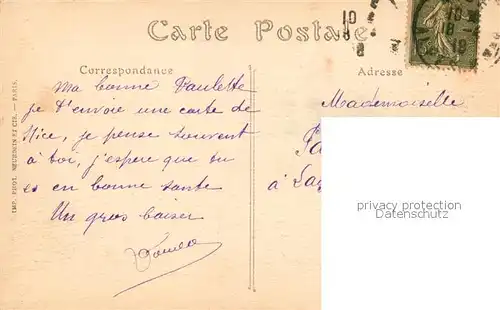 Carte Postale
Correspondance
Adresse
Ma bonne Paulette
je t'envoie une carte de
Nice, je pense souvent
à toi, j'espère que tu
es en bonne santé
Un gros baiser
Mademoiselle
à
privacy protection
Datenschutz
IMP. PHOT. NEURDEIN ET CIE. — PARIS.
10
8
10
8
19